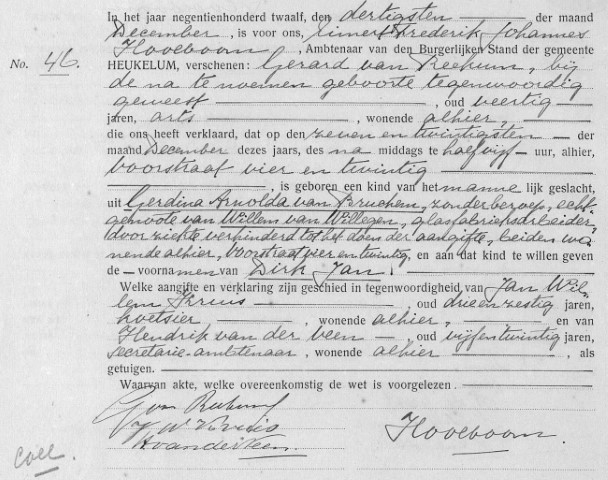 In het jaar negentienhonderd twaalf, den dertigsten — der maand
December, is voor ons, Frederik Johannes
Hooeboom, Ambtenaar van den Burgerlijken Stand der gemeente
No. 46. HEUKELUM, verschenen: Gerard van Reekum, bij
de na te noemen geboorte tegenwoordig
geweest — , oud veertig —
jaren, arts — , wonende alhier, —
die ons heeft verklaard, dat op den zeven en twintigsten — der
maand December dezes jaars, des na middags te half vijf — uur, alhier,
voorstraat vier en twintig —
— , is geboren een kind van het manne lijk geslacht,
uit Gerdina Arnolda van Bruchem, zonder beroep, echt-
genoote van Willem van Willegen, glasfabrieksarbeider,
door ziekte verhinderd tot het doen der aangifte, beiden wo-
nende alhier, voorstraat vier en twintig, en aan dat kind te willen geven
de — voornamen van Dirk Jan. —
Welke aangifte en verklaring zijn geschied in tegenwoordigheid van Jan Wil-
lem — , oud drie en zestig jaren,
koetsier — , wonende alhier, — en van
Hendrik van der Veen — , oud vijf en twintig jaren,
secretarie-ambtenaar, wonende alhier — , als
getuigen. —
Waarvan akte, welke overeenkomstig de wet is voorgelezen —
G van Reekum
J W
H van der Veen. Hooeboom.
coll.